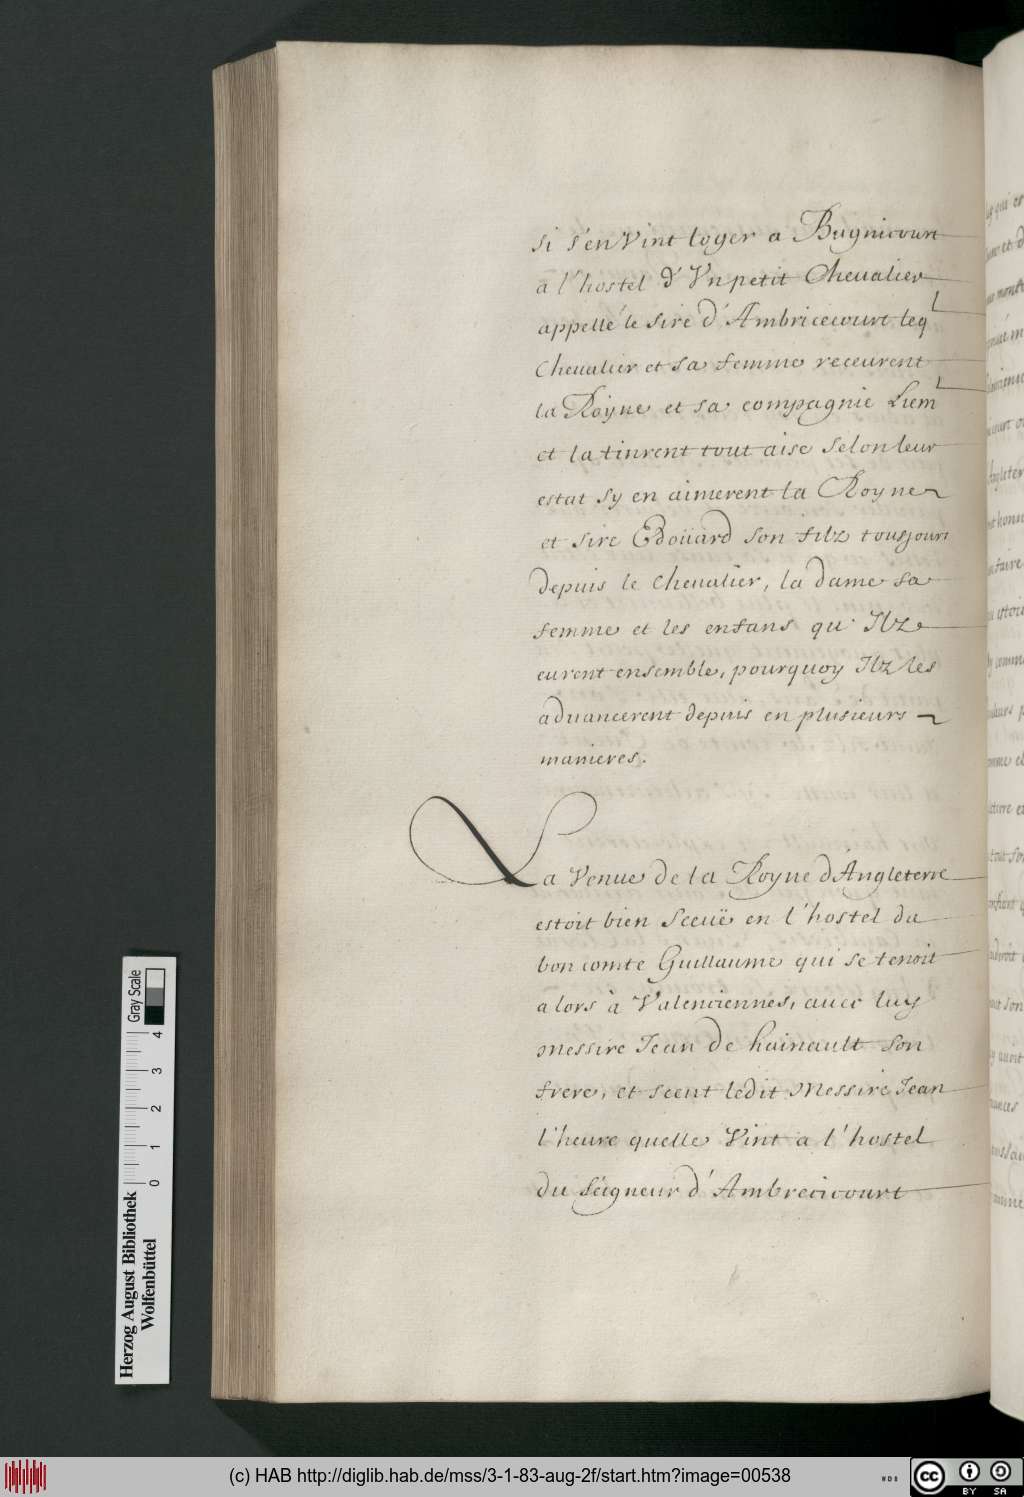 si s'en vint loger a Bugnicourt
a l'hostel d'Vn petit Chevalier
appellé le sire d'Ambricecourt leq
Chevalier et sa femme receurent
la Royne et sa compagnie Liem
et la tinrent tout aise selon leur
estat sy en aimerent la Royne
et sire Edoüard son filz tousjours
depuis le Chevalier, la dame sa
femme et les enfans qu' Ilz
eurent ensemble, pourquoy Ilz les
advancerent depuis en plusieurs
manieres.
La Venue de la Royne d'Angleterre
estoit bien sceuë en l'hostel du
bon comte Guillaume qui se tenoit
alors à Valenciennes, avec luy
Messire Jean de hainault son
frere, et sceut ledit Messire Jean
l'heure quelle Vint a l'hostel
du Seigneur d'Ambrecicourt
Herzog August Bibliothek
Wolfenbüttel
0 1 2 3 4
Gray Scale
(c) HAB http://diglib.hab.de/mss/3-1-83-aug-2f/start.htm?image=00538
WDB
cc BY SA